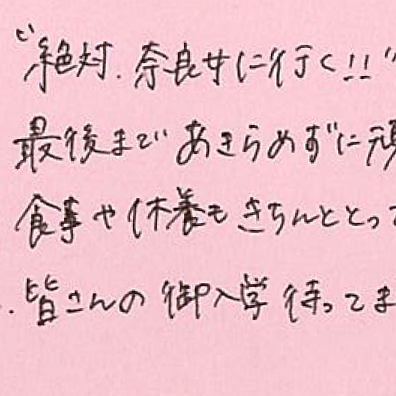 "絶対、奈良女に行く!!"
最後まであきらめずに頑
食事や休養もきちんととって
皆さんの御入学待ってま